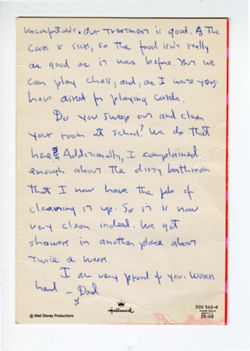 uncomfortable. Our treatment is good. The
cook is sick, so the food isn't really
as good as it was before but we
can play chess, and, as I wrote you,
have asked for playing cards.
Do you sweep out and clean
your room at school? We do that
here. Additionally, I complained
enough about the dirty bathroom
that I now have the job of
cleaning it up. So it is now
very clean indeed. We get
showers in another place about
twice a week.
I am very proud of you. Work
hard - Dad
© Walt Disney Productions
Hallmark
50V 560-4